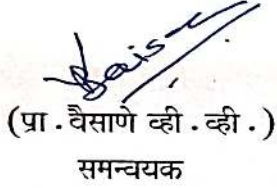 (प्रा. वैसाणे व्ही. व्ही.)
समन्वयक